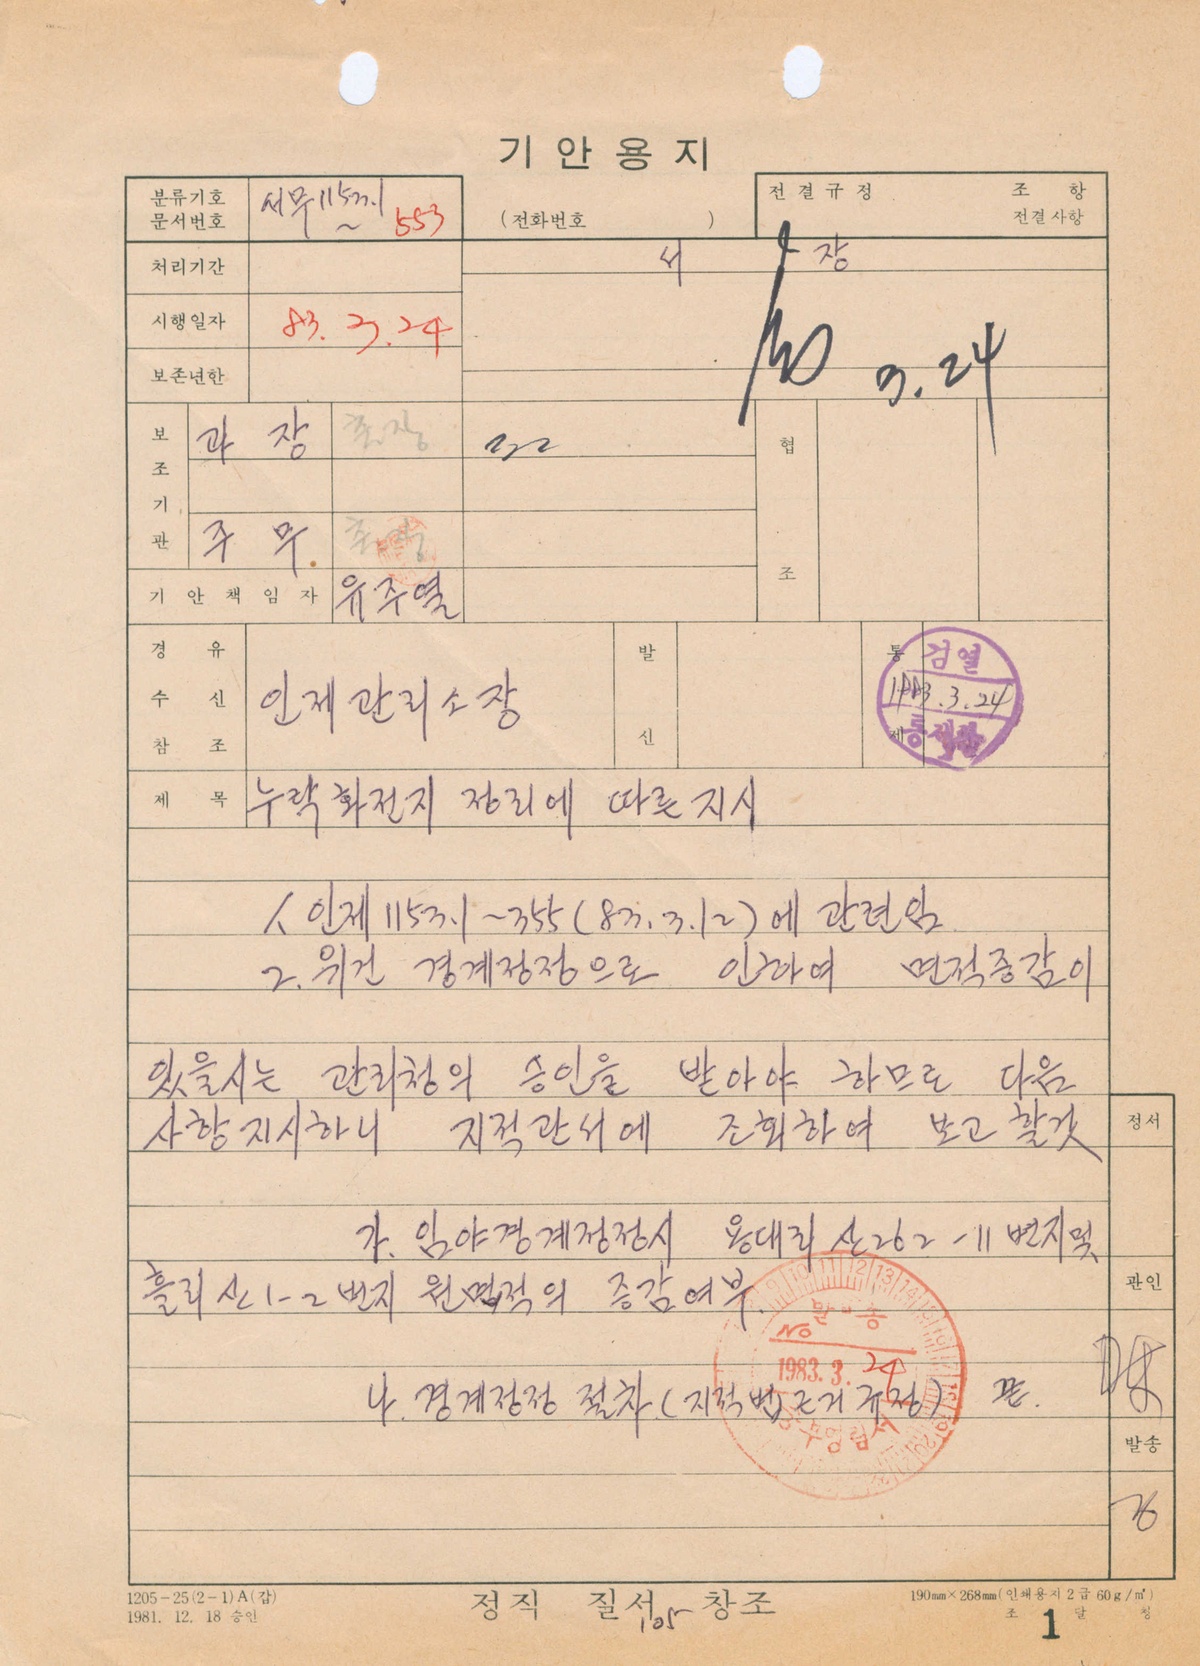 기안용지
분류기호
문서번호
서무 1153.1
~
553
(전화번호 )
전결규정 조 항
전결사항
처리기간
서 장
시행일자
83. 3. 24
3. 24
보존년한
보조기관
과 장
출장
협조
주 무
출장
기안책임자
유주열
경유
수신
참조
인제관리소장
발신
통제
검열
1983.3.24
통제관
제 목
누락화전지 정리에 따른 지시
1. 인제 1153.1~355(83.3.12)에 관련임
2. 위건 경계정정으로 인하여 면적증감이
있을시는 관리청의 승인을 받아야 하므로 다음
사항 지시하니 지적관서에 조회하여 보고 할것
정서
가. 임야경계정정시 용대리 산262-11 번지및
흘리 산1-2 번지 원면적의 증감여부.
관인
발송
No
1983. 3. 24
나. 경계정정 절차(지적법 근거 규정) 끝.
중부영림서
발송
1205-25(2-1)A(갑)
1981. 12. 18 승인
정직 질서 창조
105
190mm×268mm(인쇄용지 2급 60g/㎡)
조 달 청
1